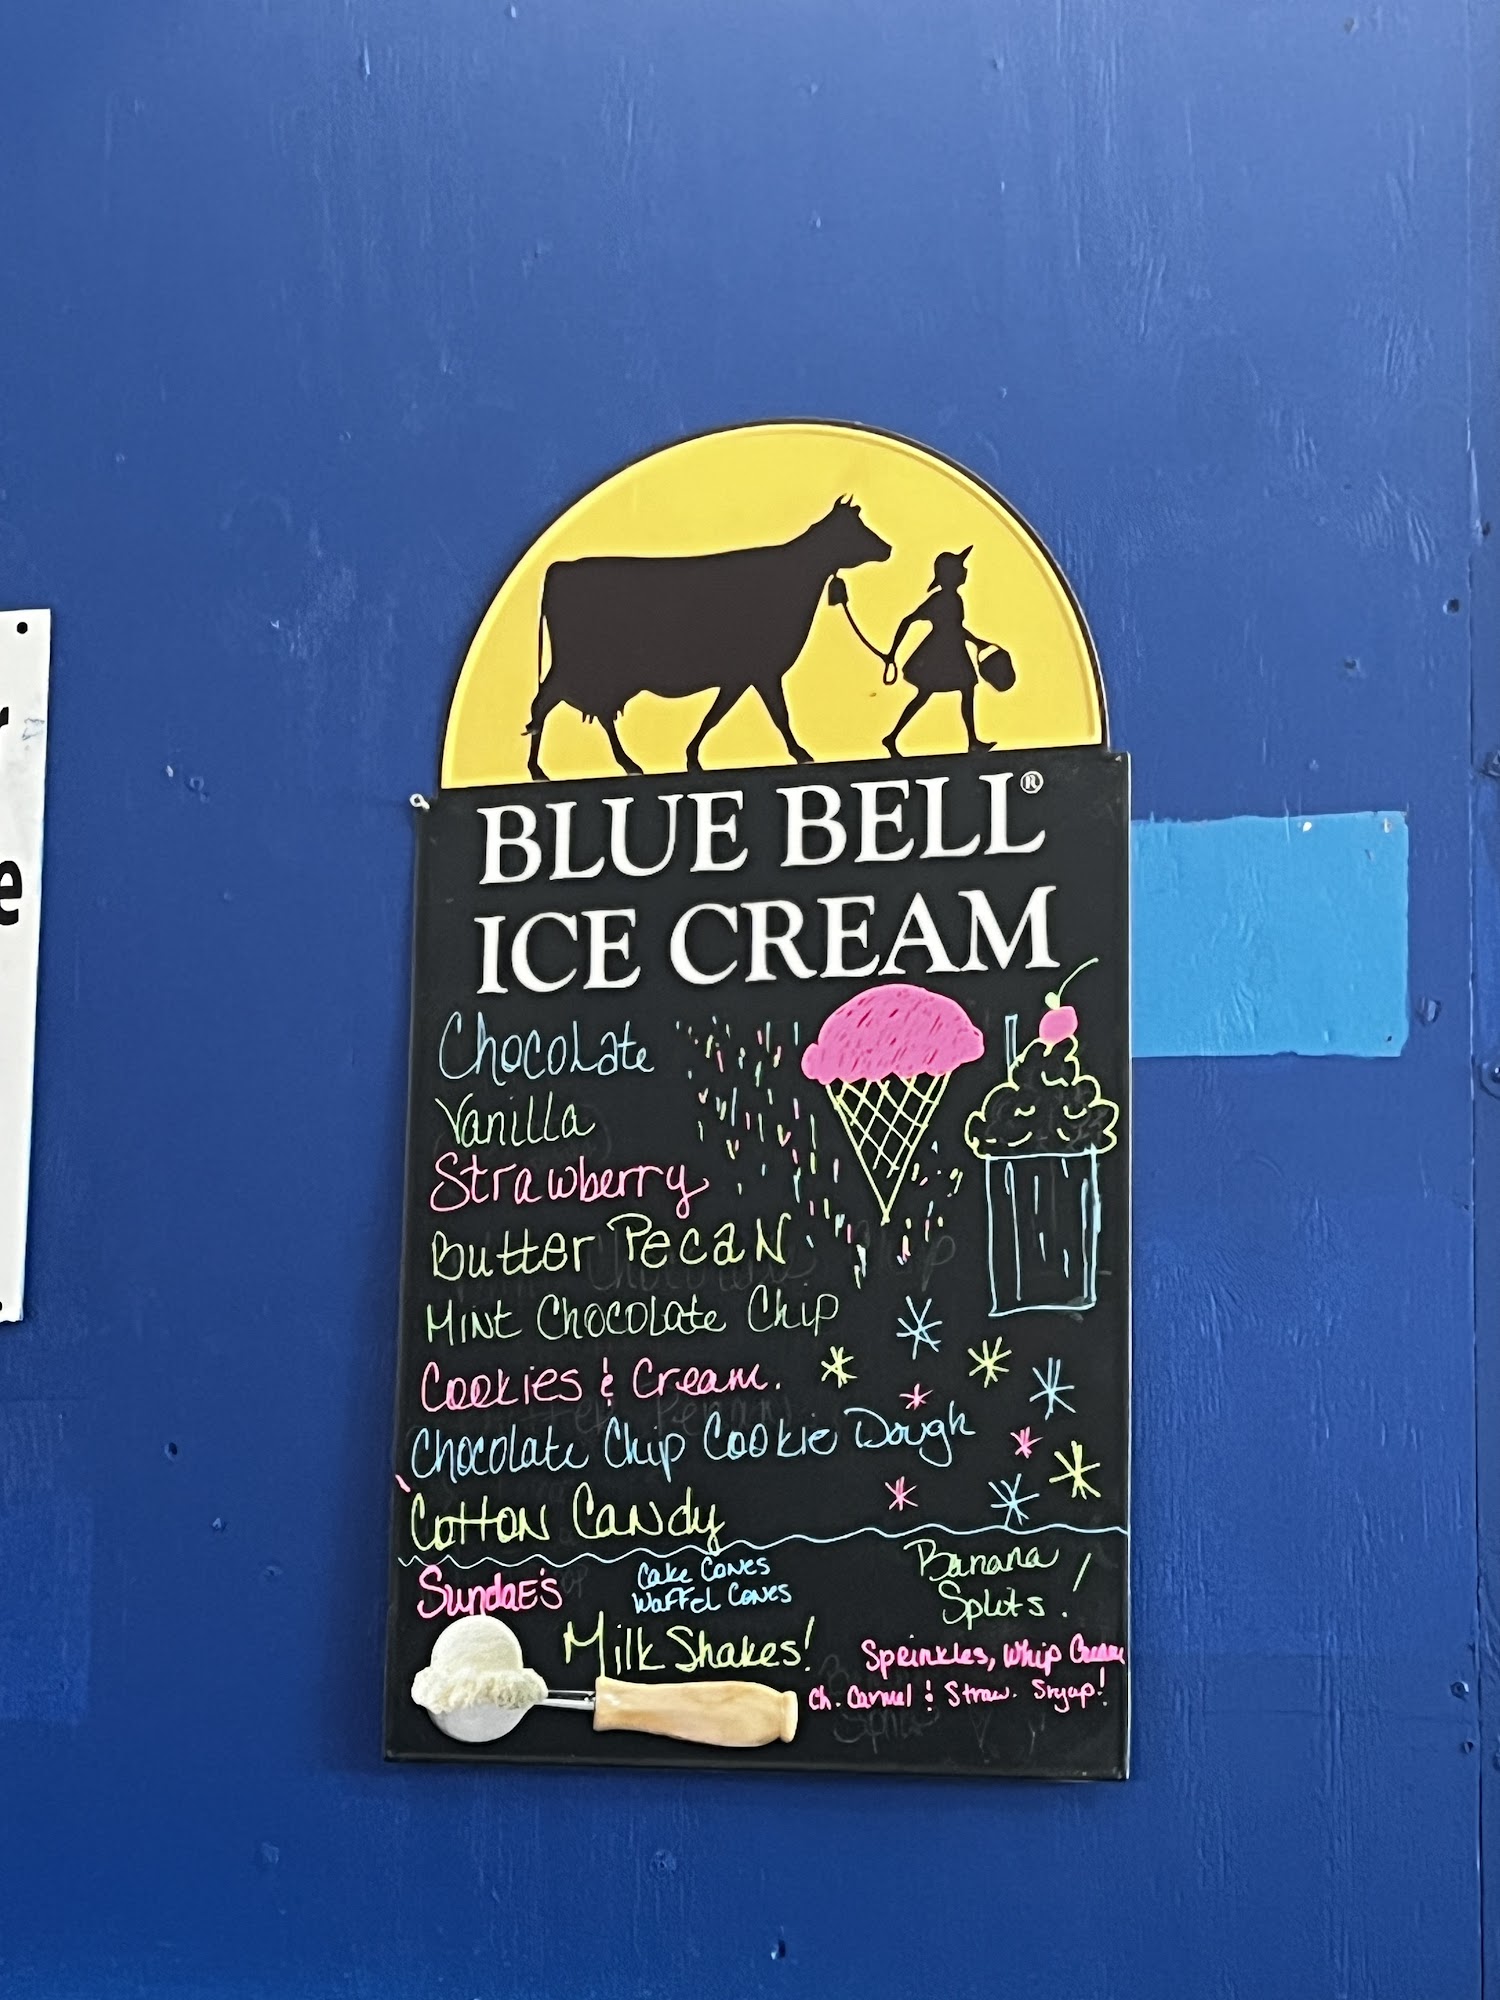 r
e
BLUE BELL®
ICE CREAM
Chocolate
Vanilla
Strawberry
Butter Pecan
Mint Chocolate Chip
Cookies & Cream.
Chocolate Chip Cookie Dough
Cotton Candy
Sundae's
Cake Cones
Waffel Cones
Banana
Splits!
Milk Shakes!
Sprinkles, Whip Cream
Ch. Carmel & Straw. Sryup!